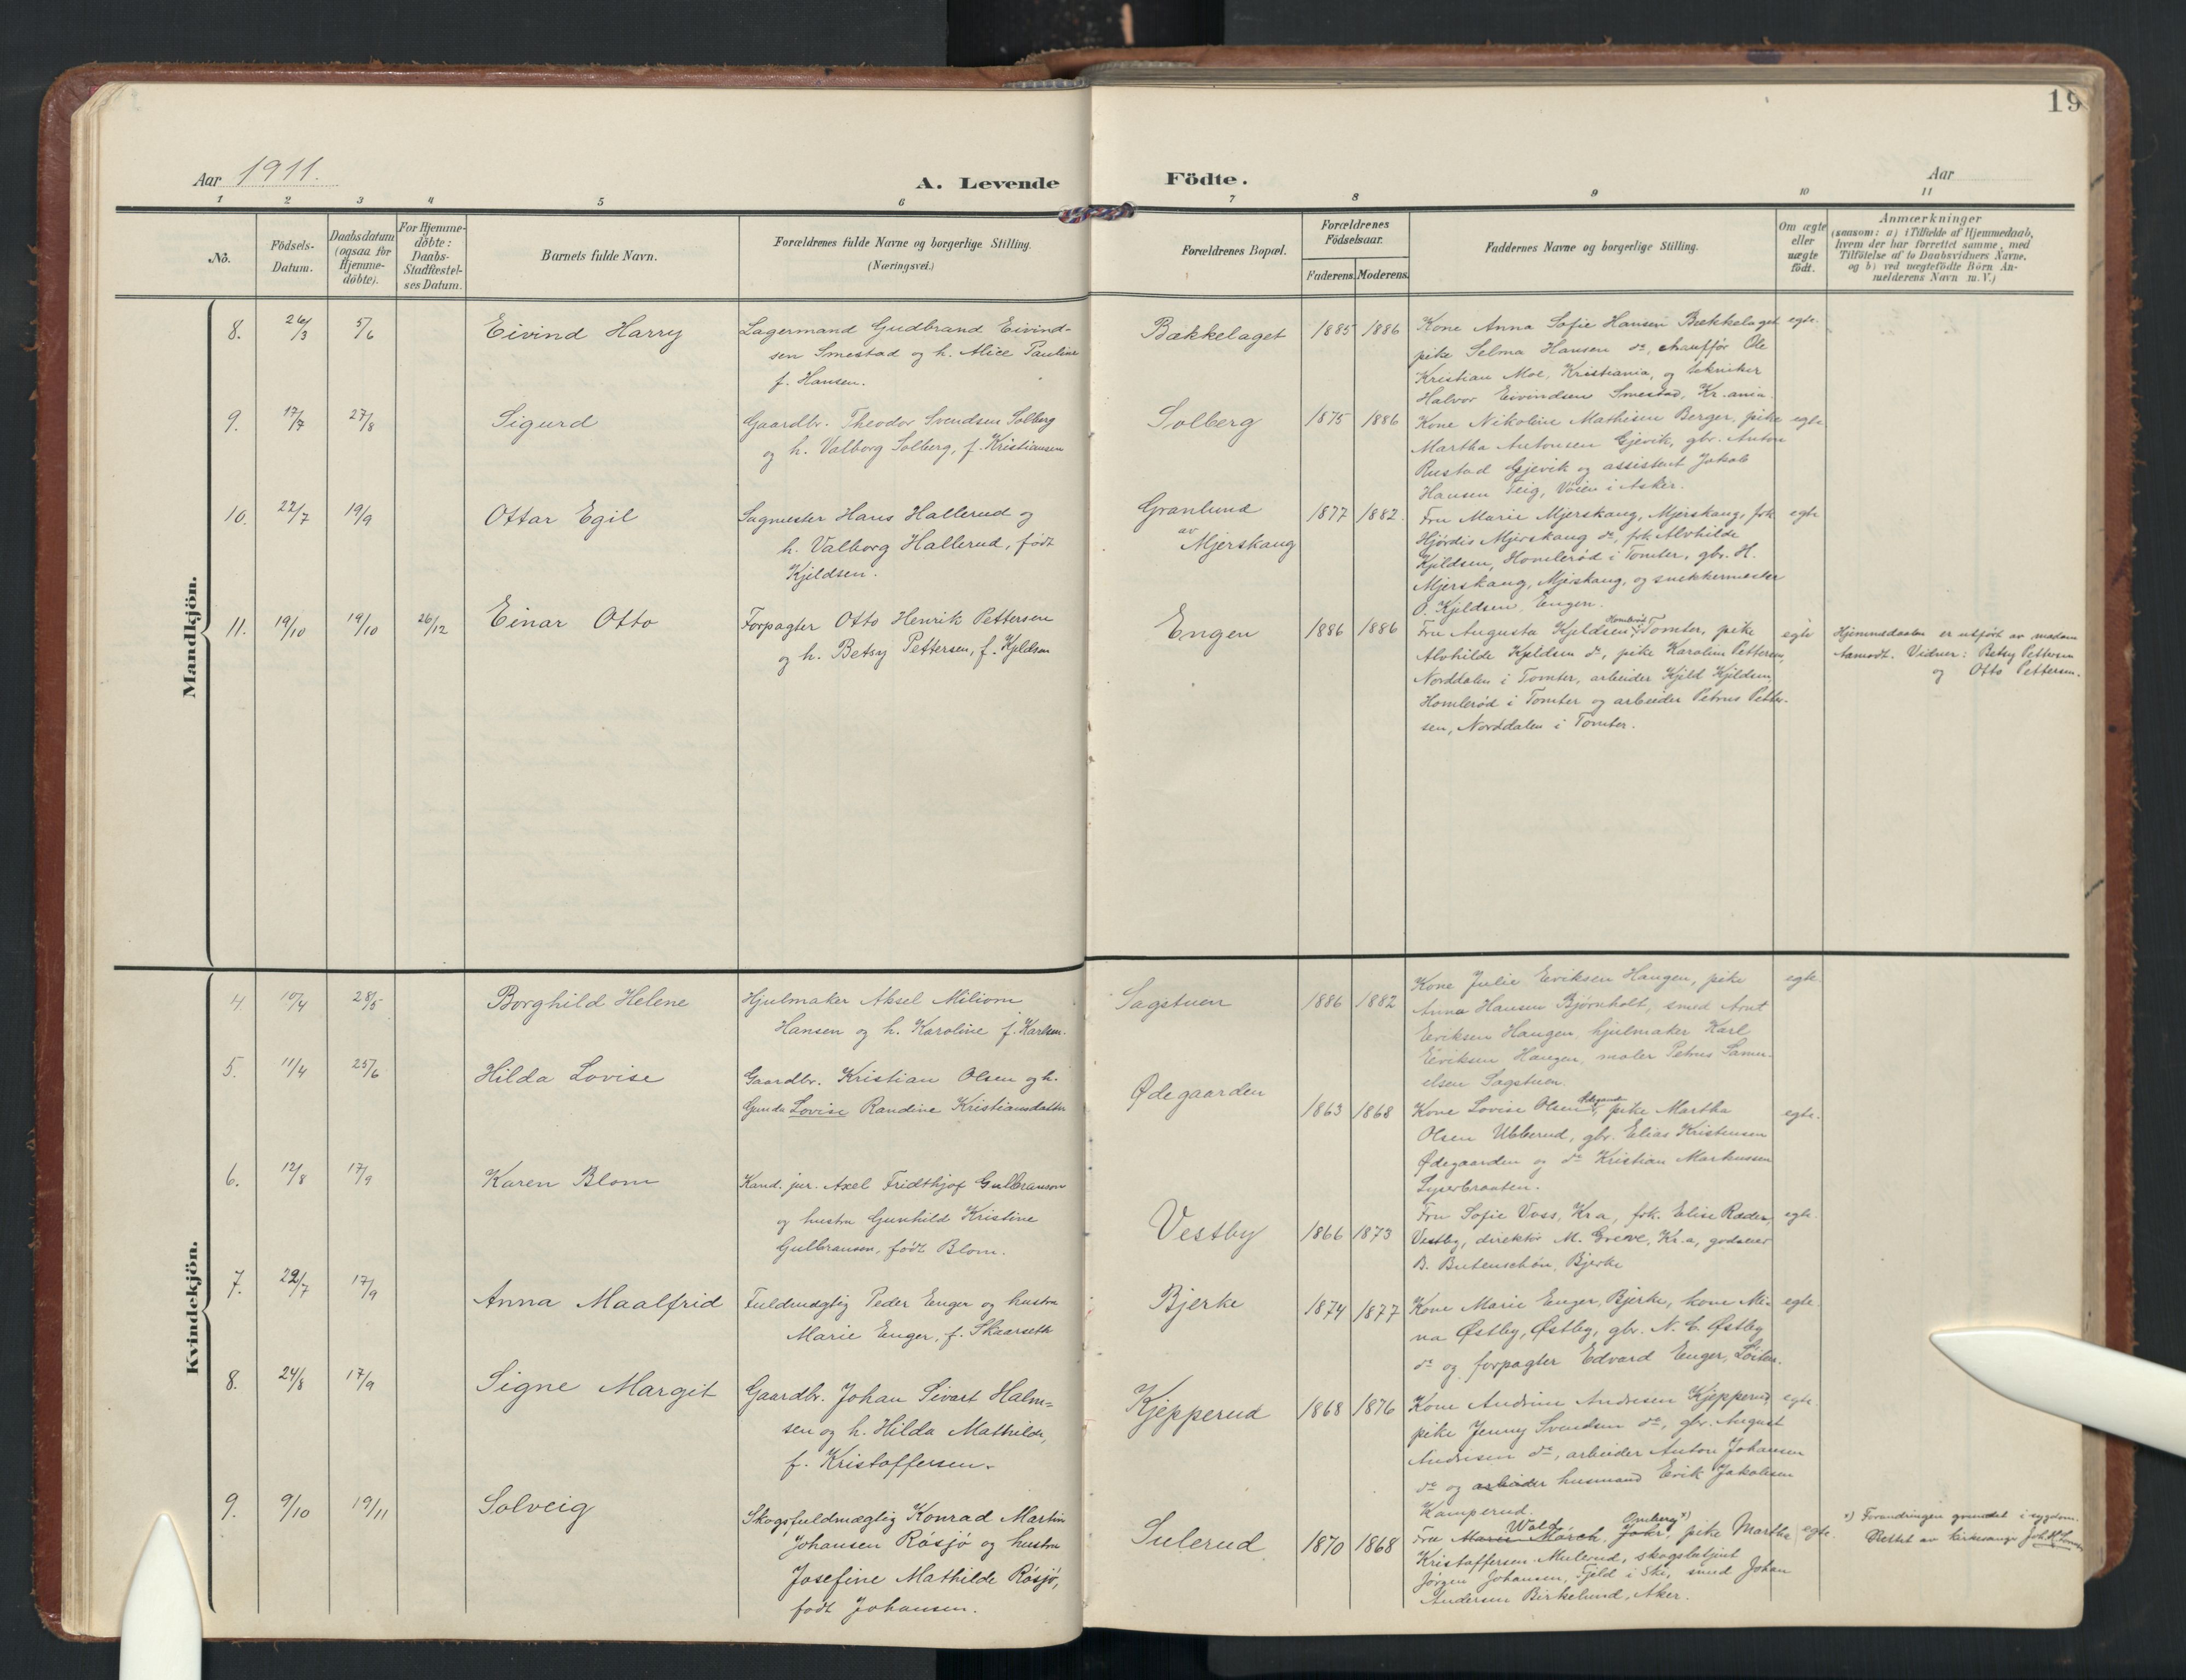 19
Aar 1911.
A. Levende
Födte.
Aar
1 2 3 4 5 6 7 8 9 10 11
No.
Födsels-
Datum.
Daabsdatum
(ogsaa for
Hjemme-
döbte).
For Hjemme-
döbte:
Daabs-
Stadfæstel-
ses Datum.
Barnets fulde Navn.
Forældrenes fulde Navne og borgerlige Stilling.
(Næringsvei.)
Forældrenes Bopæl.
Forældrenes
Födselsaar.
Faderens. Moderens.
Faddernes Navne og borgerlige Stilling.
Om ægte
eller
uægte
födt.
Anmærkninger
(saasom: a) i Tilfælde af Hjemmedaab,
hvem der har forrettet samme, med
Tilföielse af to Daabsvidners Navne,
og b) ved uægtefödte Börn An-
melderens Navn m. V.)
Mandkjön.
8. 26/3 5/6 Eivind Harry
Lagermand Gudbrand Eivind-
sen Smestad og h. Alice Pauline
f. Hansen.
Bækkelaget 1885 1886
Kone Anna Sofie Hansen Bækkelaget egte.
pike Selma Hansen do, chauffør Ole
Kristian Moe, Kristiania, og tekniker
Halvor Eivindsen Smestad, Kr.ania.
9. 17/7 27/8 Sigurd
Gaardbr. Theodor Svendsen Solberg
og h. Valborg Solberg, f. Kristiansen
Solberg 1875 1886
Kone Nikoline Mathisen Berger, pike egte
Martha Antonsen Gjevik, gbr. Anton
Rustad Gjevik og assistent Jakob
Hansen Teig, Vøien i Asker.
10. 22/7 19/9 Ottar Egil
Sagmester Hans Hallerud og
h. Valborg Hallerud, født
Kjeldsen.
Granlund
av
Mjerskaug
1877 1882.
Fru Marie Mjerskaug, Mjerskaug, frk. egte
Hjørdis Mjerskaug do, frk. Alvhilde
Kjeldsen, Homlerød i Tomter, gbr. H.
Mjerskaug, Mjerskaug, og snekkermester
O. Kjeldsen, Engen.
11. 19/10 19/10 26/12 Einar Otto
Forpagter Otto Henrik Pettersen
og h. Betsy Pettersen, f. Kjeldsen
Engen 1886 1886
Homlerød
Fru Augusta Kjeldsen, Tomter, pike egte
Alvhilde Kjeldsen do, pike Karoline Pettersen,
Norddalen i Tomter, arbeider Kjeld Kjeldsen,
Homlerød i Tomter og arbeider Petrus Petter-
sen, Norddalen i Tomter.
Hjemmedaaben er utført av madam
Aamodt. Vidner: Betsy Pettersen
og Otto Pettersen.
Kvindekjön.
4. 10/4 28/5 Borghild Helene
Hjulmaker Aksel Miliom
Hansen og h. Karoline f. Karlsen.
Sagstuen 1886 1882
Kone Julie Eriksen Haugen, pike egte.
Anna Hansen Bjørnholt, smed Arnt
Eriksen Haugen, hjulmaker Karl
Eriksen Haugen, maler Petrus Samu-
elsen Sagstuen.
5. 11/4 25/6 Hilda Lovise
Gaardbr. Kristian Olsen og h.
Gunda Lovise Randine Kristiansdatter
Ødegaarden 1863 1868
Kone Lovise Olsen, pike Martha egte.
Olsen Ubberud, gbr. Elias Kristensen
Ødegaarden og do Kristian Markussen
Lyserbraaten.
6. 12/8 17/9 Karen Blom
Kand. jur. Axel Fridthjof Gulbranson
og hustru Gunhild Kristine
Gulbransen, født Blom.
Vestby 1866 1873
Fru Sofie Voss, Kr.a, frk. Elise Ræder, egte.
Vestby, direktør M. Greve, Kr.a, godseier
B. Butenschøn, Bjerke
7. 22/7 17/9 Anna Maalfrid
Fuldmægtig Peder Enger og hustru
Marie Enger, f. Skaarseth
Bjerke 1874 1877
Kone Marie Enger, Bjerke, kone Mi- egte
na Østby, Østby, gbr. N. C. Østby
do og forpagter Edvard Enger, Løiten.
8. 24/8 17/9 Signe Margit
Gaardbr. Johan Sivart Halm-
sen og h. Hilda Mathilde,
f. Kristoffersen.
Kjepperud 1868 1876
Kone Andrine Andresen Kjepperud, egte.
pike Jenny Svendsen do, gbr. August
Andresen do, arbeider Anton Johansen
do og arbeider husmand Erik Jakobsen
Kamperud.
9. 9/10 19/11 Solveig
Skogsfuldmægtig Konrad Martin
Johansen Røsjø og hustru
Josefine Mathilde Røsjø,
født Johansen.
Sulerud 1870 1868
Wold
Fru Marie March, pike Martha egte.
Kristoffersen Mulerud, skogsbetjent
Jørgen Johansen, Fjeld i Ski, smed Johan
Andersen Birkelund, Aker.
x) Forandringen grundet i sygdom.
Rettet av kirkesanger